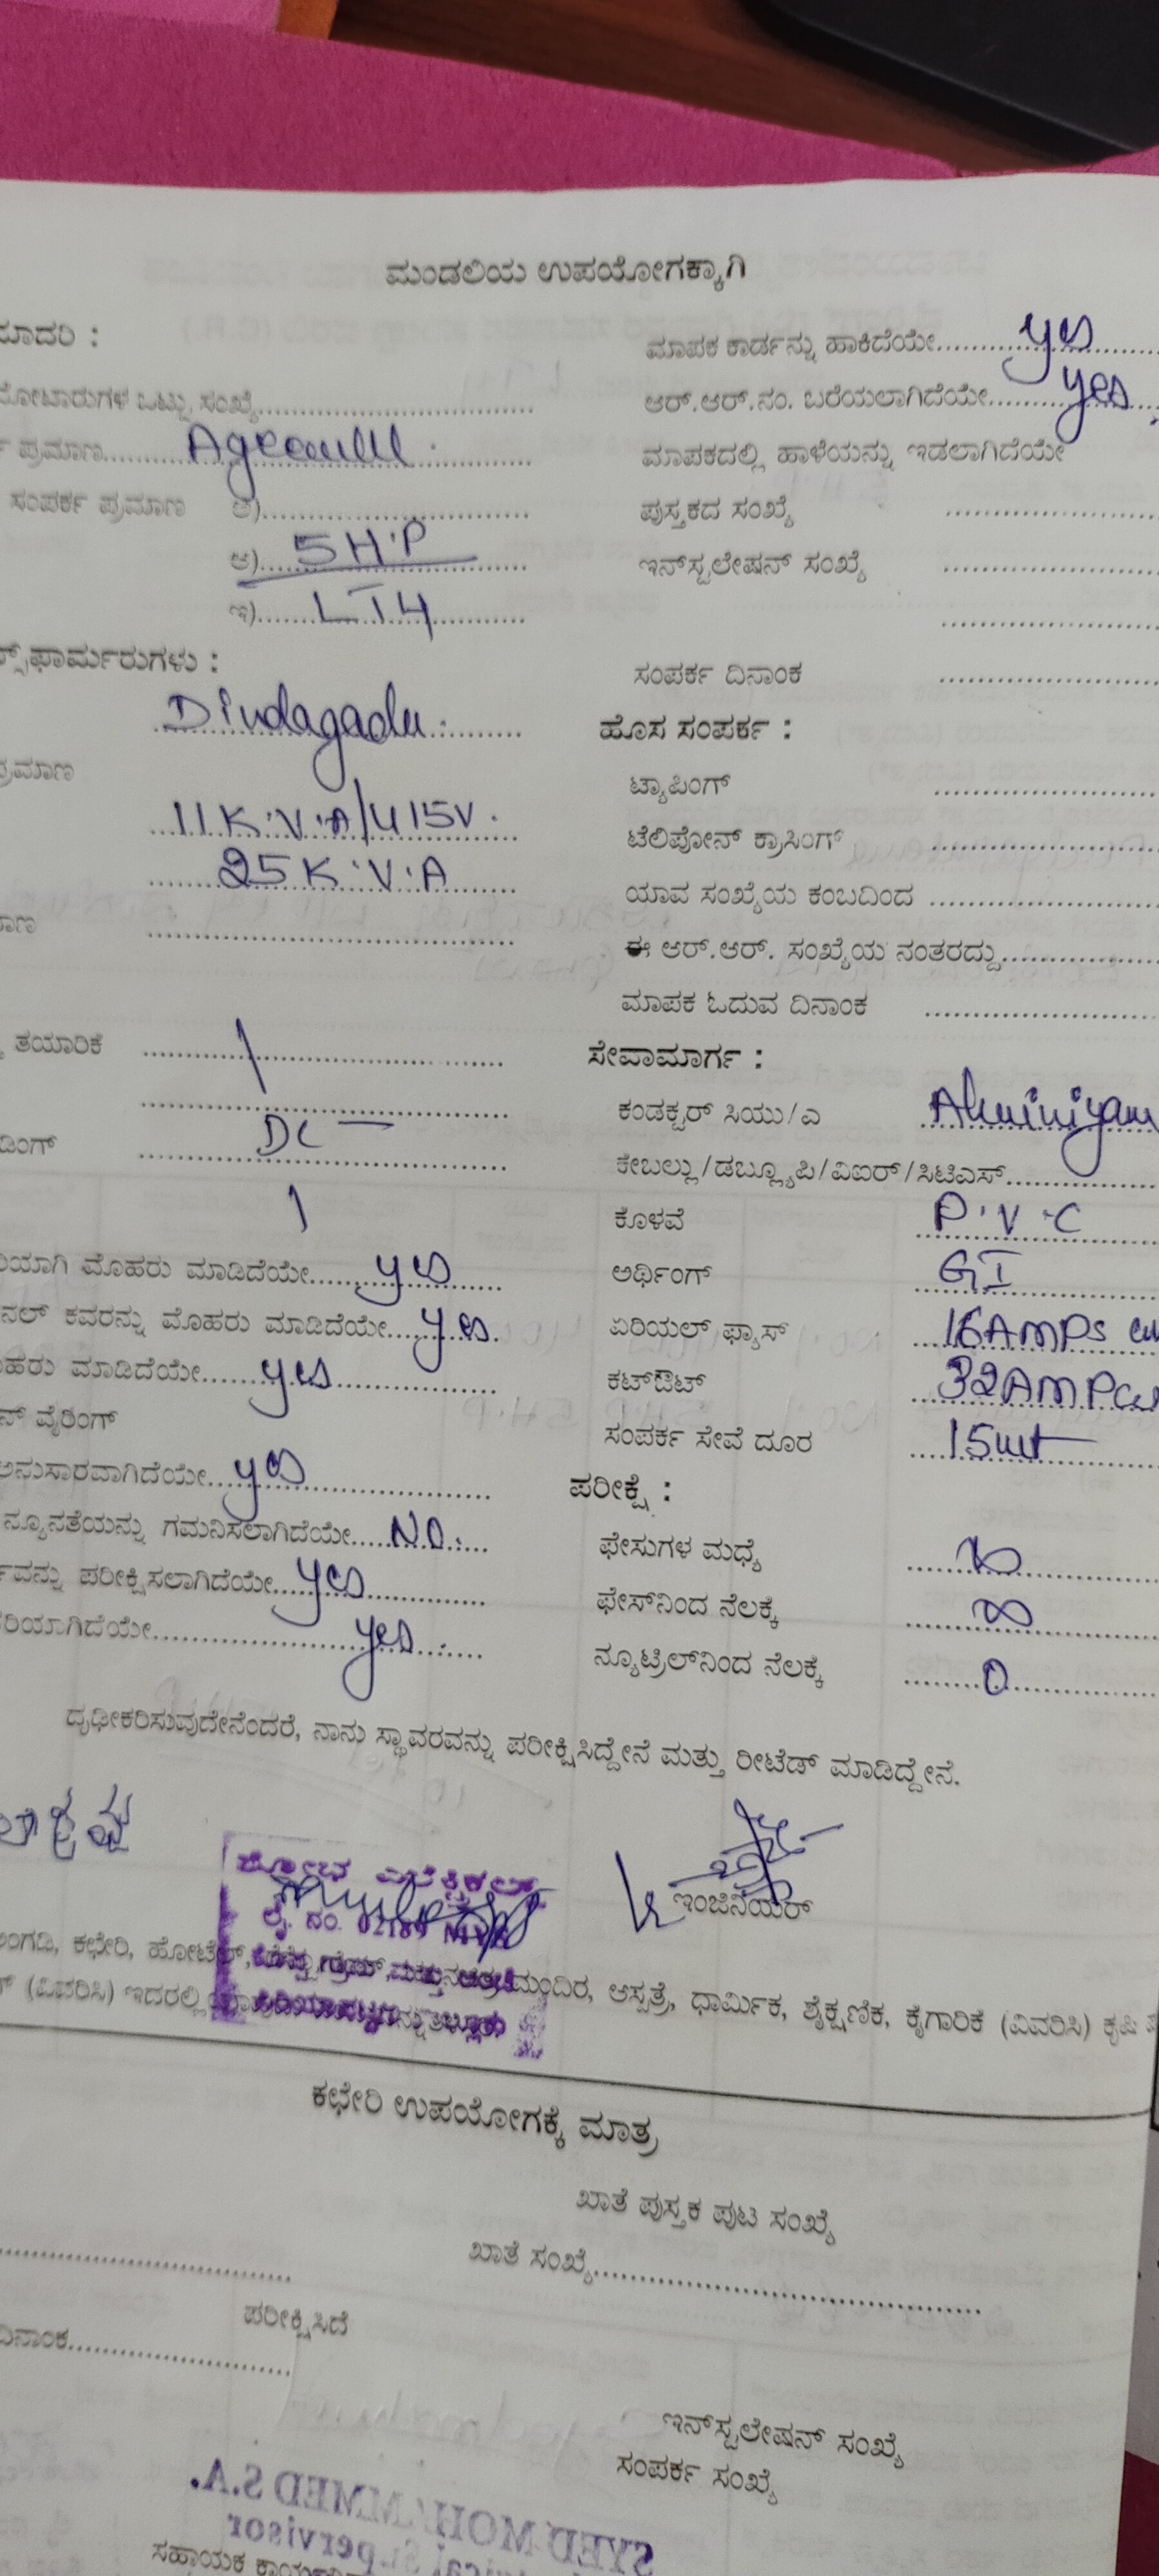 ಮಂಡಲಿಯ ಉಪಯೋಗಕ್ಕಾಗಿ
ಮಾದರಿ :
ಮಾಪಕ ಕಾರ್ಡನ್ನು ಹಾಕಿದೆಯೇ yes
ಮೋಟಾರುಗಳ ಒಟ್ಟು ಸಂಖ್ಯೆ
ಆರ್.ಆರ್.ನಂ. ಬರೆಯಲಾಗಿದೆಯೇ yes
ಪ್ರಮಾಣ
ಮಾಪಕದಲ್ಲಿ ಹಾಳೆಯನ್ನು ಇಡಲಾಗಿದೆಯೇ
ಸಂಪರ್ಕ ಪ್ರಮಾಣ ಅ)
ಪುಸ್ತಕದ ಸಂಖ್ಯೆ
ಆ) 5 H.P
ಇನ್‌ಸ್ಟಲೇಷನ್ ಸಂಖ್ಯೆ
ಇ) LT4
ಫಾರ್ಮರುಗಳು :
ಸಂಪರ್ಕ ದಿನಾಂಕ
Dindagadu
ಹೊಸ ಸಂಪರ್ಕ :
ಪ್ರಮಾಣ
ಟ್ಯಾಪಿಂಗ್
11 K.V.A/415V.
ಟೆಲಿಪೋನ್ ಕ್ರಾಸಿಂಗ್
25 K.V.A
ಯಾವ ಸಂಖ್ಯೆಯ ಕಂಬದಿಂದ
ಈ ಆರ್.ಆರ್. ಸಂಖ್ಯೆಯ ನಂತರದ್ದು
ಮಾಪಕ ಓದುವ ದಿನಾಂಕ
ತಯಾರಿಕೆ
ಸೇವಾಮಾರ್ಗ :
ಕಂಡಕ್ಟರ್ ಸಿಯು/ಎ Aluminiyam
DC —
ಕೇಬಲ್ಲು/ಡಬ್ಲ್ಯೂಪಿ/ವಿಐರ್/ಸಿಟಿಎಸ್
ಕೊಳವೆ P.V.C
ಮೊಹರು ಮಾಡಿದೆಯೇ yes
ಅರ್ಥಿಂಗ್ GI
ಕವರನ್ನು ಮೊಹರು ಮಾಡಿದೆಯೇ yes.
ಏರಿಯಲ್ ಫ್ಯಾಸ್ 16 AMPs
ಮಾಡಿದೆಯೇ yes
ಕಟ್‌ಔಟ್ 32 AMP
ವೈರಿಂಗ್
ಸಂಪರ್ಕ ಸೇವೆ ದೂರ 15 mt
ಅನುಸಾರವಾಗಿದೆಯೇ yes
ಪರೀಕ್ಷೆ :
ನ್ಯೂನತೆಯನ್ನು ಗಮನಿಸಲಾಗಿದೆಯೇ NO.
ಫೇಸುಗಳ ಮಧ್ಯೆ ∞
ಪರೀಕ್ಷಿಸಲಾಗಿದೆಯೇ yes
ಫೇಸ್‌ನಿಂದ ನೆಲಕ್ಕೆ ∞
yes
ನ್ಯೂಟ್ರಿಲ್‌ನಿಂದ ನೆಲಕ್ಕೆ 0
ದೃಢೀಕರಿಸುವುದೇನೆಂದರೆ, ನಾನು ಸ್ಥಾವರವನ್ನು ಪರೀಕ್ಷಿಸಿದ್ದೇನೆ ಮತ್ತು ರೀಟೆಡ್ ಮಾಡಿದ್ದೇನೆ.
ಇಂಜಿನಿಯರ್
ಅಂಗಡಿ, ಕಛೇರಿ, ಹೋಟೆಲ್, ಮಂದಿರ, ಆಸ್ಪತ್ರೆ, ಧಾರ್ಮಿಕ, ಶೈಕ್ಷಣಿಕ, ಕೈಗಾರಿಕೆ (ವಿವರಿಸಿ) ಕೃಷಿ
(ವಿವರಿಸಿ) ಇದರಲ್ಲಿ
ಕಛೇರಿ ಉಪಯೋಗಕ್ಕೆ ಮಾತ್ರ
ಖಾತೆ ಪುಸ್ತಕ ಪುಟ ಸಂಖ್ಯೆ
ಖಾತೆ ಸಂಖ್ಯೆ
ಪರೀಕ್ಷಿಸಿದೆ
ದಿನಾಂಕ
ಇನ್‌ಸ್ಟಲೇಷನ್ ಸಂಖ್ಯೆ
ಸಂಪರ್ಕ ಸಂಖ್ಯೆ
SYED MOHAMMED S.A.
Supervisor
ಸಹಾಯಕ